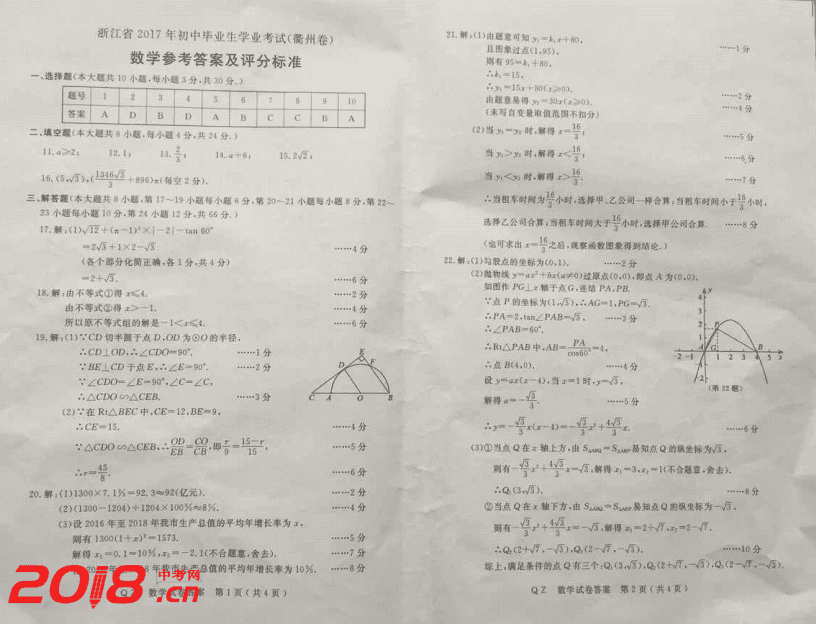 浙江省2017年初中毕业生学业考试(衢州卷)
数学参考答案及评分标准
一、选择题(本大题共10小题,每小题3分,共30分.)
题号 1 2 3 4 5 6 7 8 9 10
答案 A D B D A B C C B A
二、填空题(本大题共6小题,每小题4分,共24分.)
11. a≥2; 12. 1; 13. 2/3; 14. a+6; 15. 2√2;
16. (5,√3),(1346√3/3+896)π(每空2分).
三、解答题(本大题共8小题,第17~19小题每小题6分,第20~21小题每小题8分,第22~
23小题每小题10分,第24小题12分,共66分.)
17. 解:(1)√12+(π-1)⁰×|-2|-tan 60°
=2√3+1×2-√3 ……4分
(各个部分化简正确,各1分,共4分)
=2+√3. ……6分
18. 解:由不等式①得x≤4. ……2分
由不等式②得x>-1. ……4分
所以原不等式组的解是-1<x≤4. ……6分
19. 解:(1)∵CD切半圆于点D,OD为⊙O的半径,
∴CD⊥OD,∴∠CDO=90°. ……1分
∵BE⊥CD于点E,∴∠E=90°. ……2分
∵∠CDO=∠E=90°,∠C=∠C,
∴△CDO∽△CEB. ……3分
C A O B D E F
(2)∵在Rt△BEC中,CE=12,BE=9,
∴CE=15. ……4分
∵△CDO∽△CEB,∴OD/EB=CO/CB,即r/9=15-r/15, ……5分
∴r=45/8. ……6分
20. 解:(1)1300×7.1%=92.3≈92(亿元). ……2分
(2)(1300-1204)÷1204×100%≈8%. ……4分
(3)设2016年至2018年我市生产总值的平均年增长率为x,
则有1300(1+x)²=1573. ……5分
解得x₁=0.1=10%,x₂=-2.1(不合题意,舍去). ……7分
年我市生产总值的平均年增长率为10%. ……8分
2018.cn 中考网
QZ 数学试卷答案 第1页(共4页)
21. 解:(1)由题意可知y₁=k₁x+80,
且图象过点(1,95), ……1分
则有95=k₁+80,
∴k₁=15,
∴y₁=15x+80(x≥0). ……2分
由题意易得y₂=30x(x≥0). ……4分
(未写自变量取值范围不扣分)
(2)当y₁=y₂时,解得x=16/3; ……5分
当y₁>y₂时,解得x<16/3; ……6分
当y₁<y₂时,解得x>16/3. ……7分
∴当租车时间为16/3小时,选择甲、乙公司一样合算;当租车时间小于16/3小时,
选择乙公司合算;当租车时间大于16/3小时,选择甲公司合算. ……8分
(也可求出x=16/3之后,观察函数图象得到结论.)
22. 解:(1)勾股点的坐标为(0,1). ……2分
(2)抛物线y=ax²+bx(a≠0)过原点(0,0),即点A为(0,0).
如图作PG⊥x轴于点G,连结PA,PB.
∵点P的坐标为(1,√3),∴AG=1,PG=√3.
∴PA=2,tan∠PAB=√3, ……3分
∴∠PAB=60°,
∴Rt△PAB中,AB=PA/cos60°=4,
∴点B(4,0). ……4分
设y=ax(x-4),当x=1时,y=√3,
解得a=-√3/3. ……5分
(第22题)
∴y=-√3/3x(x-4)=-√3/3x²+4√3/3x. ……6分
(3)①当点Q在x轴上方,由S△ABQ=S△ABP易知点Q的纵坐标为√3,
则有-√3/3x²+4√3/3x=√3,解得x₁=3,x₂=1(不合题意,舍去).
∴Q₁(3,√3). ……8分
②当点Q在x轴下方,由S△ABQ=S△ABP易知点Q的纵坐标为-√3,
则有-√3/3x²+4√3/3x=-√3,解得x₁=2+√7,x₂=2-√7.
∴Q₂(2+√7,-√3),Q₃(2-√7,-√3). ……10分
综上,满足条件的点Q有三个:Q₁(3,√3),Q₂(2+√7,-√3),Q₃(2-√7,-√3).
QZ 数学试卷答案 第2页(共4页)